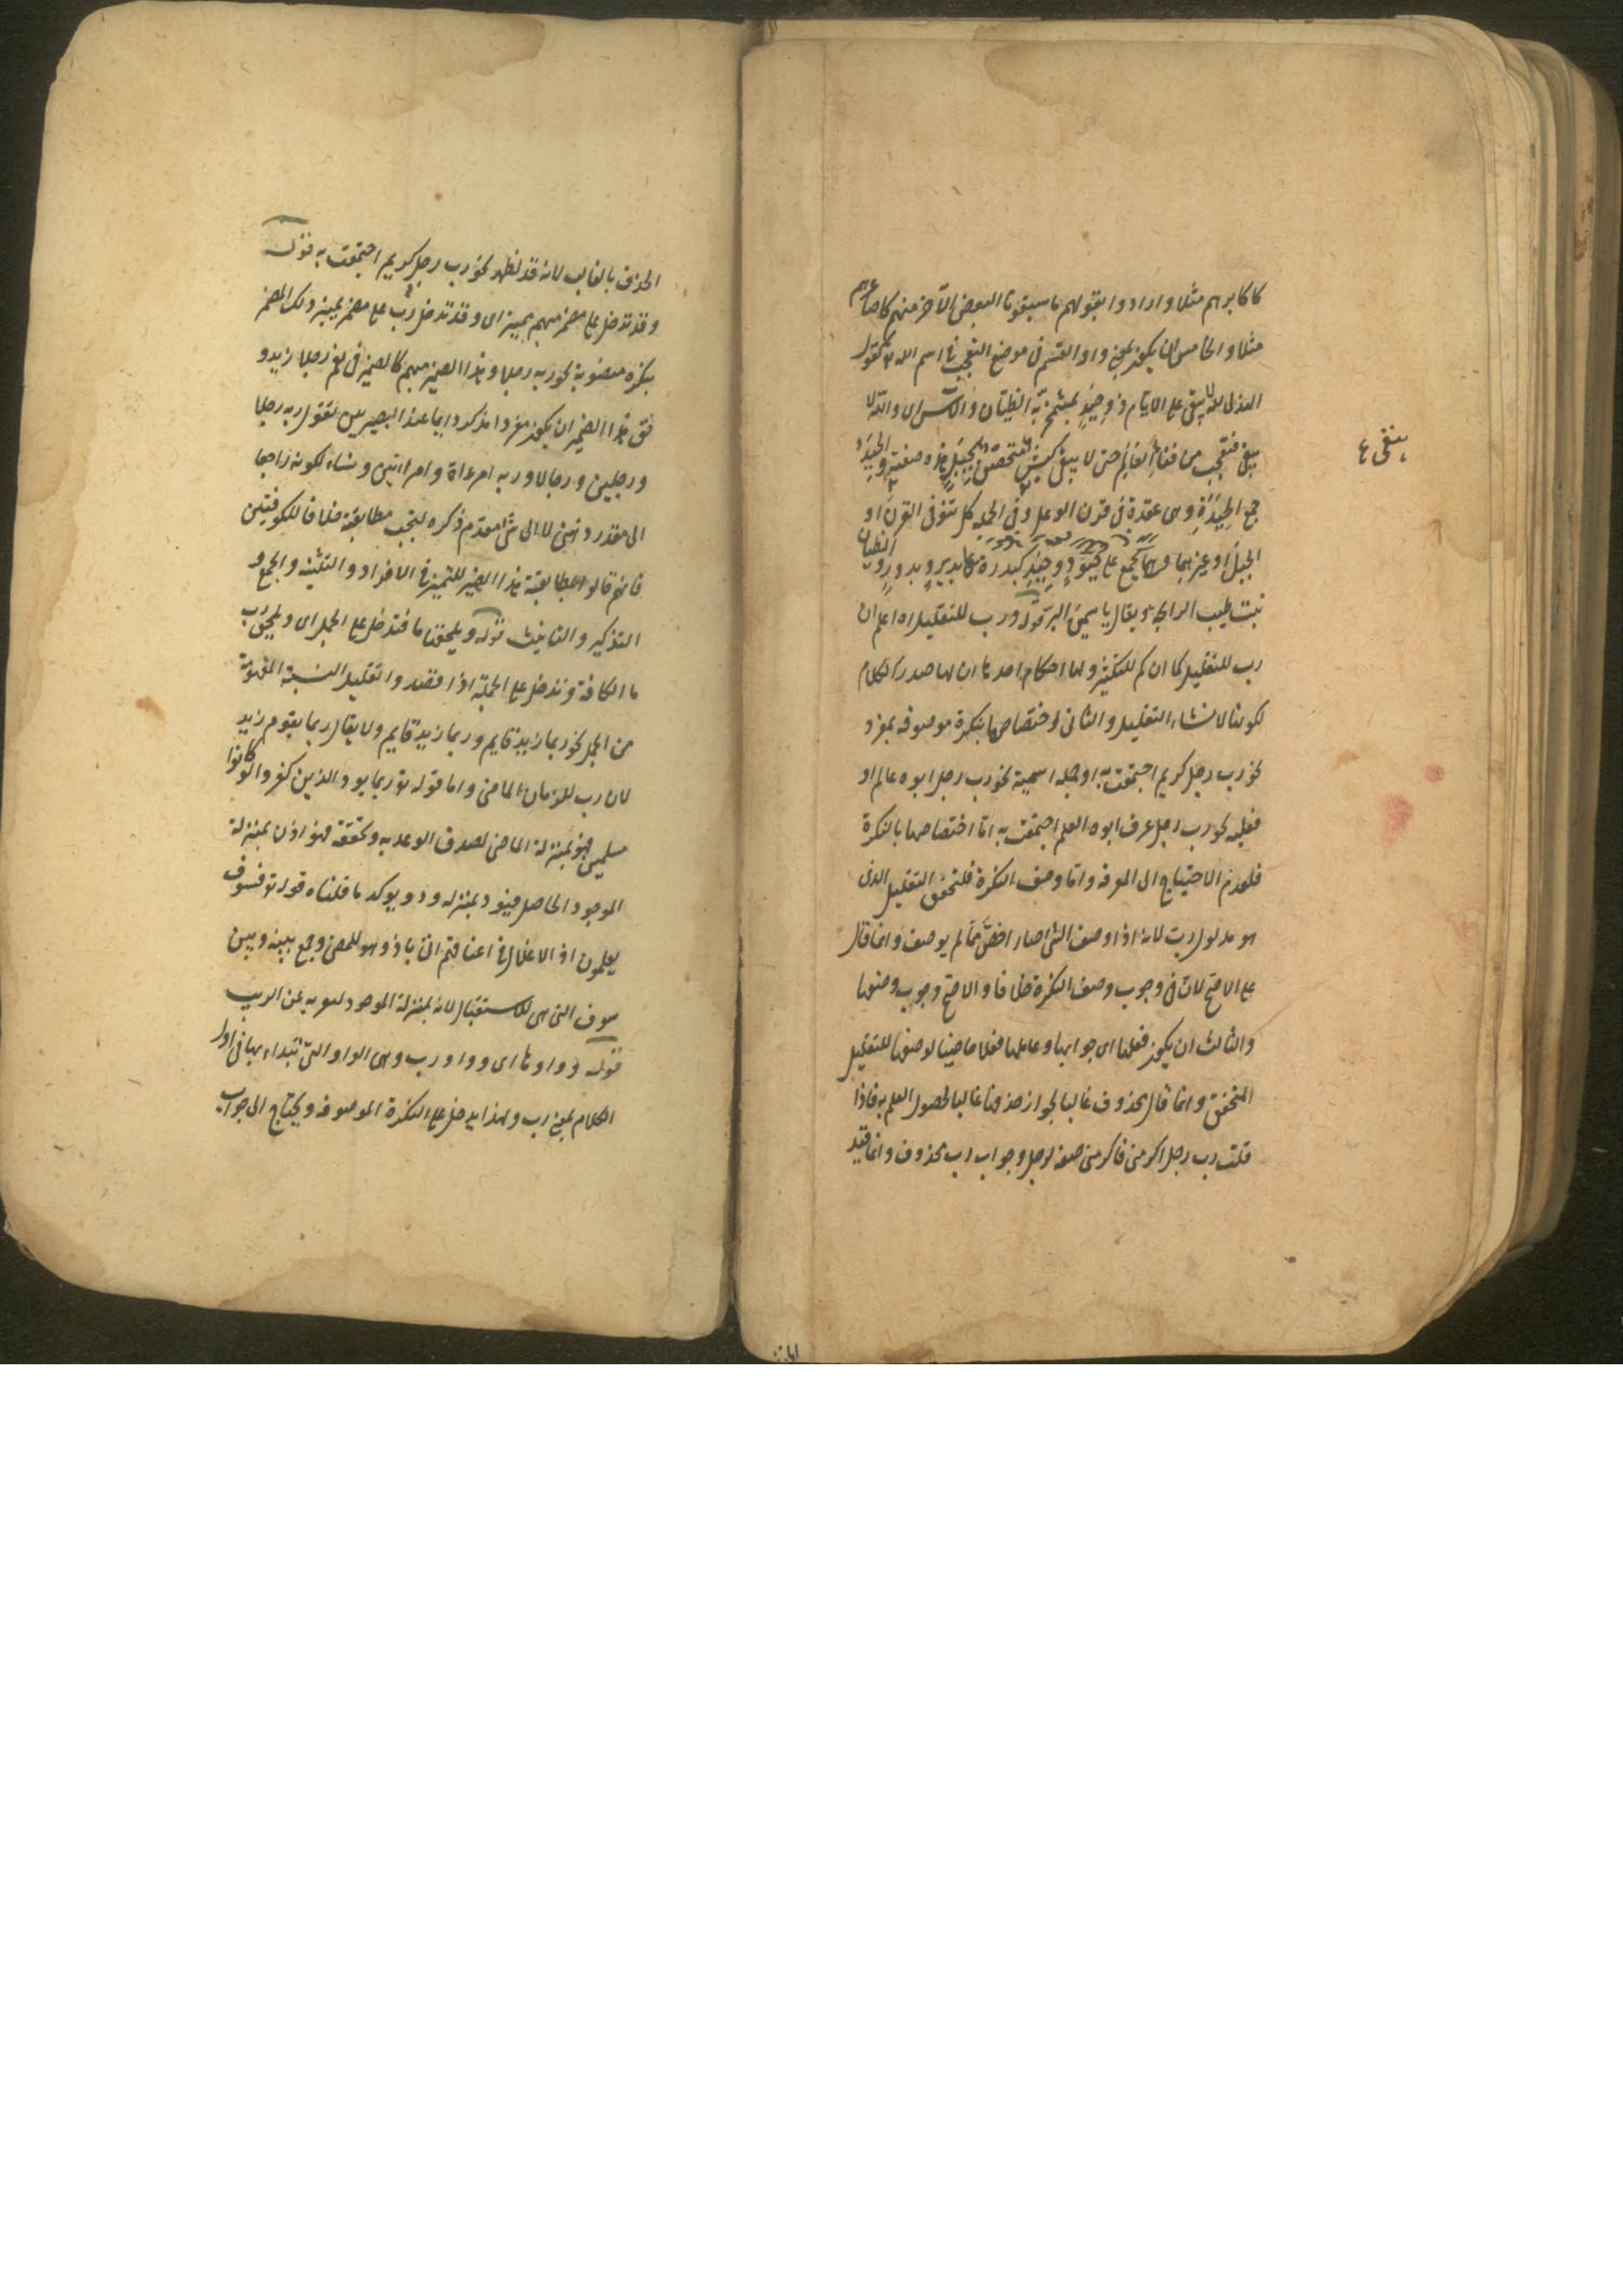 كاكابرهم مثلا وارادوا بقولهم ما سبقونا البعض الآخر منهم كاصاغرهم
مثلا والخامس ان يكون بمعنى واو القسم في موضع التعجب في اسم الله تع كقول
الهذلى لله لا يبقى على الايام ذو حيد بمشمخر به الظيان والآس اى والله لا
يبقى
يبقى فتعجب من فناء العالم حتى لا يبقى كبش بجبل هذه صفته والحيد
جمع الحيدة وهى عقدة فى قرن الوعل وفى الجمله كل نتو فى القرن او
الجبل او غيرهما وهما يجمع على حيود وحيد كبدرة على بدر وبدور والظيان
نبت طيب الرايحة ويقال ياسمين البر قوله ورب للتقليل اه اعلم ان
رب للتقليل كما ان كم للتكثير ولها احكام احدها ان لها صدر الكلام
لكونها لانشاء التقليل والثانى اختصاصها بنكرة موصوفه بمفرد
نحو رب رجل كريم اجتمعت به او جمله اسمية نحو رب رجل ابوه عالم او
فعليه نحو رب رجل عرف ابوه العلم اجتمعت به اما اختصاصها بالنكرة
فلعدم الاحتياج الى المعرفه واما وصف النكرة فلتحقق التقليل الذى
هو مدلول رب لانه اذا وصف الشئ صار اخص مما لم يوصف وانما قال
على الاصح لان فى وجوب وصف النكرة خلافا والاصح وجوب وصفها
والثالث ان يكون فعلها اى جوابها وعاملها فعلا ماضيا لوضعها للتقليل
المتحقق وانما قال محذوف غالبا لجواز حذفها غالبا لحصول العلم به فاذا
قلت رب رجل اكرمنى فاكرمنى صفة لرجل وجواب رب محذوف وانما قيد
الحذف بالغالب لانه قد يظهر نحو رب رجل كريم اجتمعت به قوله
وقد تدخل على مضمر مبهم مميز اى وقد تدخل رب على مضمر يميز ذلك المضمر
بنكره منصوبة نحو ربه رجلا وهذا الضمير مبهم كالضمير فى نعم رجلا زيد و
حق هذا الضمير ان يكون مفردا مذكرا دايما عند البصريين تقول ربه رجلا
ورجلين ورجالا وربه امرءاة وامراءتين ونساء لكونه راجعا
الى مقدر ذهنى لا الى شئ مقدم ذكره ليجب مطابقته خلافا للكوفيين
فانهم قالوا بمطابقة هذا الضمير للتميز فى الافراد والتثنيه والجمع و
التذكير والتانيث قوله ويلحقها ما فتدخل على الجمل اى ويلحق رب
ما الكافة وتدخل على الجملة اذا قصدوا تقليل النسبة المفهومة
من الجمل نحو ربما زيد قايم وربما زيد قايم ولا يقال ربما يقوم زيد
لان رب للزمان الماضى واما قوله تع ربما يود الذين كفروا لو كانوا
مسلمين فهو بمنزلة الماضى لصدق الوعد به وتحققه فهو اذن بمنزلة
الموجود الحاصل فيود بمنزله ود ويوكد ما قلناه قوله تع فسوف
يعلمون اذ الاغلال فى اعناقهم اتى باذ وهو للمضى وجمع بينه وبين
سوف التى هى للاستقبال لانه بمنزلة الموجود لعريه عن الريب
قوله وواوها اى وواو رب وهى الواو التى تبتداء بها فى اول
الكلام بمعنى رب ولهذا يدخل على النكرة الموصوفه ويحتاج الى جواب